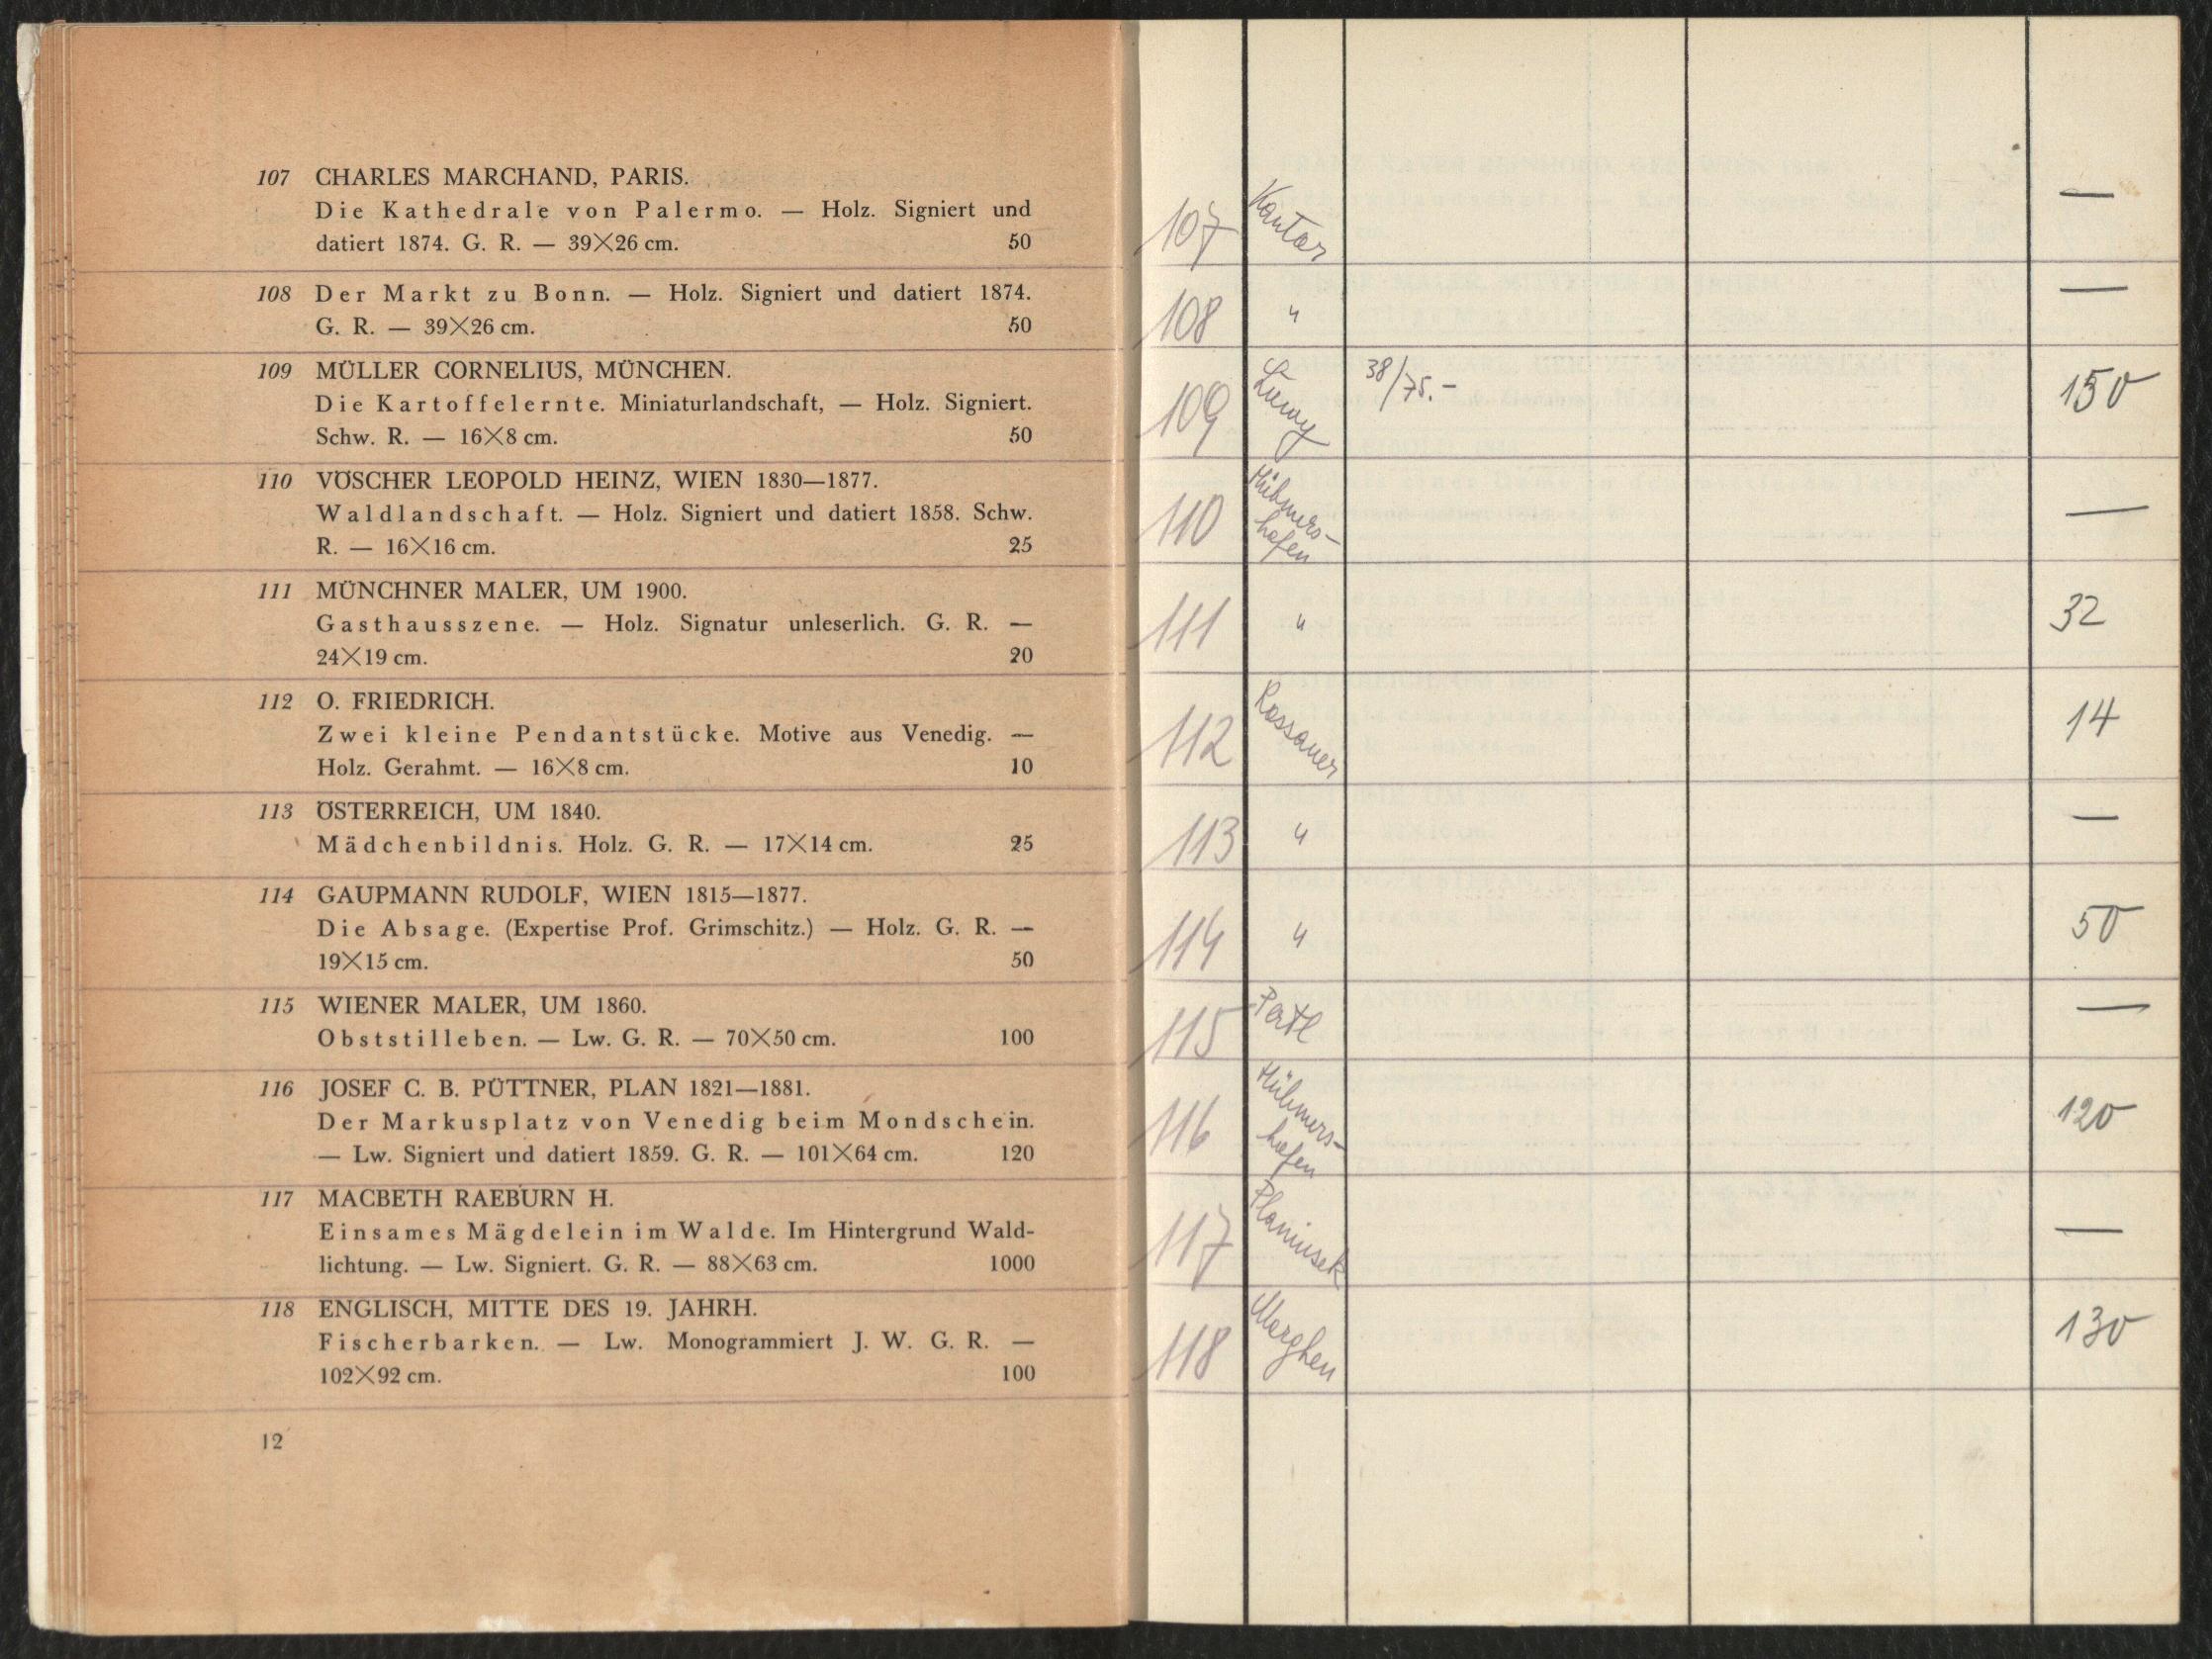 107 CHARLES MARCHAND, PARIS.
Die Kathedrale von Palermo. — Holz. Signiert und
datiert 1874. G. R. — 39×26 cm. 50
108 Der Markt zu Bonn. — Holz. Signiert und datiert 1874.
G. R. — 39×26 cm. 50
109 MÜLLER CORNELIUS, MÜNCHEN.
Die Kartoffelernte. Miniaturlandschaft, — Holz. Signiert.
Schw. R. — 16×8 cm. 50
110 VÖSCHER LEOPOLD HEINZ, WIEN 1830—1877.
Waldlandschaft. — Holz. Signiert und datiert 1858. Schw.
R. — 16×16 cm. 25
111 MÜNCHNER MALER, UM 1900.
Gasthausszene. — Holz. Signatur unleserlich. G. R. —
24×19 cm. 20
112 O. FRIEDRICH.
Zwei kleine Pendantstücke. Motive aus Venedig. —
Holz. Gerahmt. — 16×8 cm. 10
113 ÖSTERREICH, UM 1840.
Mädchenbildnis. Holz. G. R. — 17×14 cm. 25
114 GAUPMANN RUDOLF, WIEN 1815—1877.
Die Absage. (Expertise Prof. Grimschitz.) — Holz. G. R. —
19×15 cm. 50
115 WIENER MALER, UM 1860.
Obststilleben. — Lw. G. R. — 70×50 cm. 100
116 JOSEF C. B. PÜTTNER, PLAN 1821—1881.
Der Markusplatz von Venedig beim Mondschein.
— Lw. Signiert und datiert 1859. G. R. — 101×64 cm. 120
117 MACBETH RAEBURN H.
Einsames Mägdelein im Walde. Im Hintergrund Wald-
lichtung. — Lw. Signiert. G. R. — 88×63 cm. 1000
118 ENGLISCH, MITTE DES 19. JAHRH.
Fischerbarken. — Lw. Monogrammiert J. W. G. R. —
102×92 cm. 100
12
107 Kantor —
108 " —
109 38/75.- 150
110 Hübmers-
hofen —
111 " 32
112 Rossauer 14
113 " —
114 " 50
115 —
116 Hübmers-
hofen 120
117 —
118 130